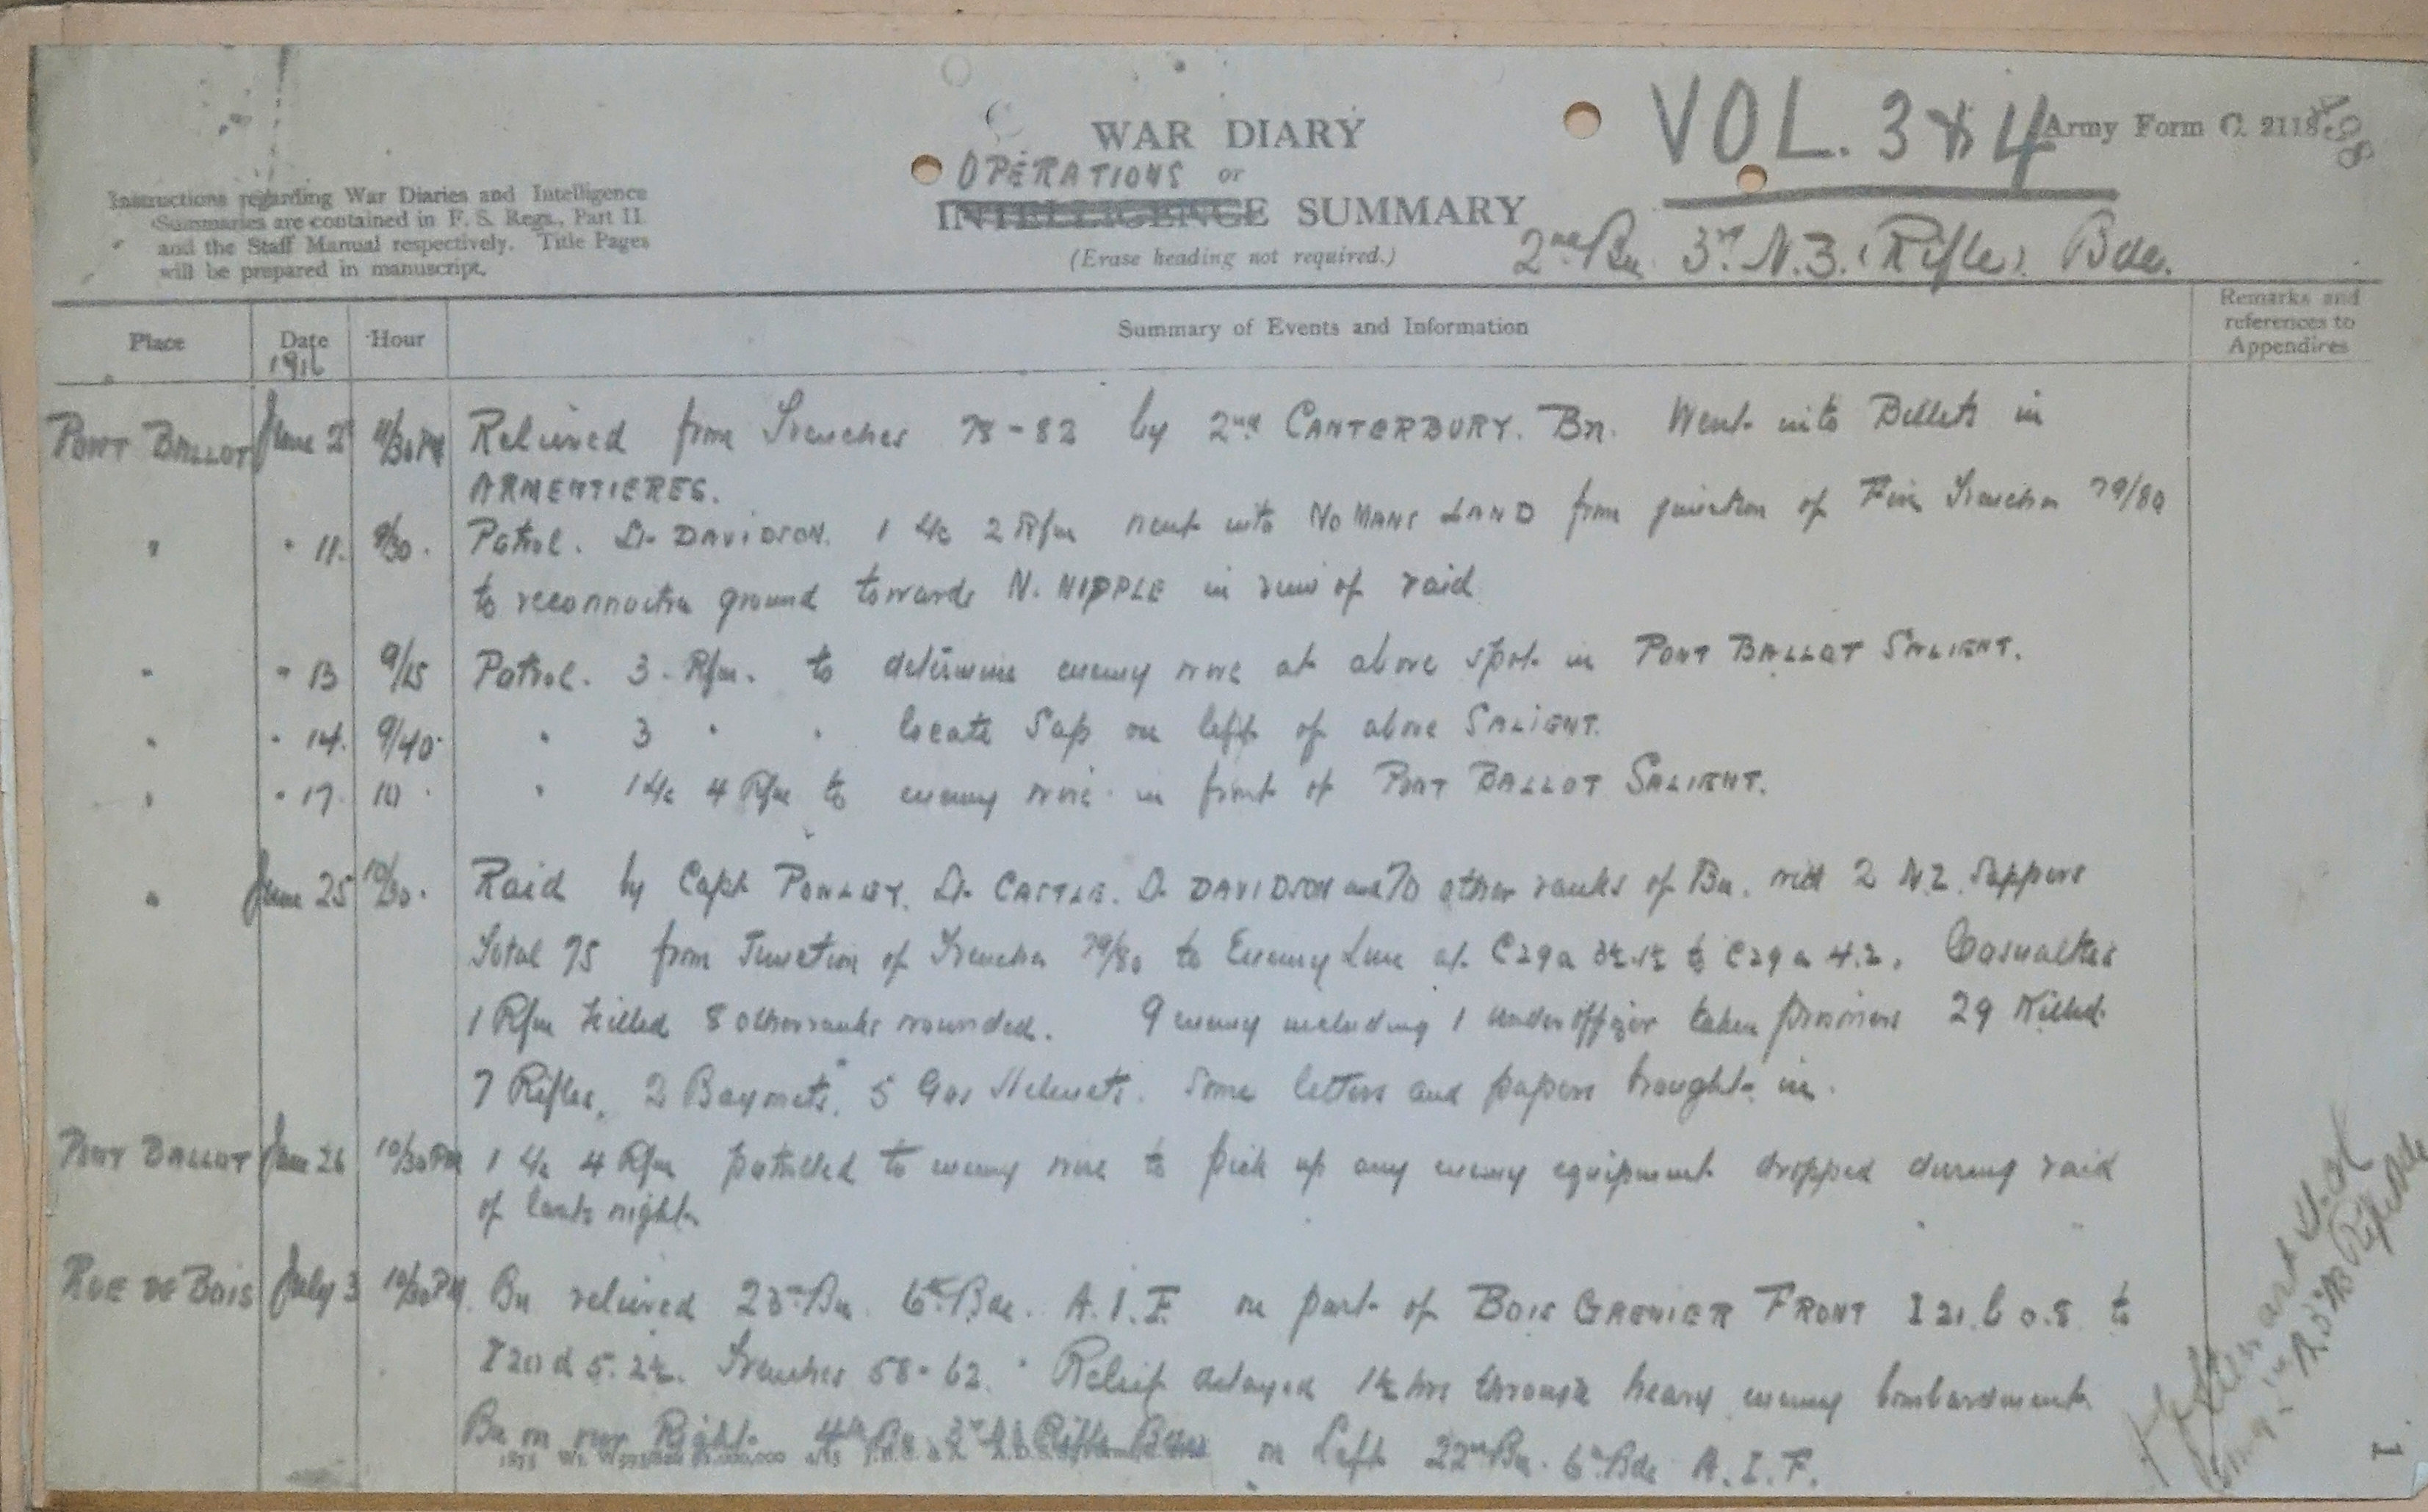 WAR DIARY
OPERATIONS or
INTELLIGENCE SUMMARY
(Erase heading not required.)
VOL. 3 & 4
Army Form C. 2118
2nd Bn. 3rd N.Z. (Rifle) Bde.
Instructions regarding War Diaries and Intelligence
Summaries are contained in F. S. Regs., Part II.
and the Staff Manual respectively. Title Pages
will be prepared in manuscript.
Place Date Hour Summary of Events and Information Remarks and references to Appendices
1916
PONT BALLOT June 11/30 PM Relieved from Trenches 78-82 by 2nd CANTERBURY. Bn. Went into Billets in
ARMENTIERES.
" " 11. 9/30. Patrol. Lt. DAVIDSON. 1 L/c 2 Rfm went into NO MANS LAND from junction of Fire Trenches 79/80
to reconnoitre ground towards N. NIPPLE in view of raid
" " 13 9/15 Patrol. 3 Rfm. to determine enemy wire at above spot in PONT BALLOT SALIENT.
" " 14. 9/40. " 3 " " locate Sap on left of above SALIENT.
" " 17. 10. " 1 L/c 4 Rfm to enemy wire in front of PONT BALLOT SALIENT.
" June 25 10/30. Raid by Capt. Lt. CASTLE. Lt. DAVIDSON and 70 other ranks of Bn. with 2 N.Z. Sappers
Total 75 from Junction of Trenches 79/80 to Enemy Line at C29a to C29a 4.2. Casualties
1 Rfm killed 8 other ranks wounded. 9 enemy including 1 under officer taken prisoners 29 Killed.
7 Rifles, 2 Bayonets, 5 Gas Helmets. Some letters and papers brought in.
PONT BALLOT June 26 10/30 PM 1 L/c 4 Rfm patrolled to enemy wire to pick up any enemy equipment dropped during raid
of last night
RUE DE BOIS July 3 10/30 PM. Bn relieved 23rd Bn. 6th Bde. A.I.F. on part of BOIS GRENIER FRONT I 21.b 0.8 to
I 20 d 5.2½. Trenches 58-62. Relief delayed 1½ hrs through heavy enemy bombardment.
Bn on our Right 4th Bn 3rd N.Z Rifle Bde on Left 22nd Bn. 6th Bde A.I.F.